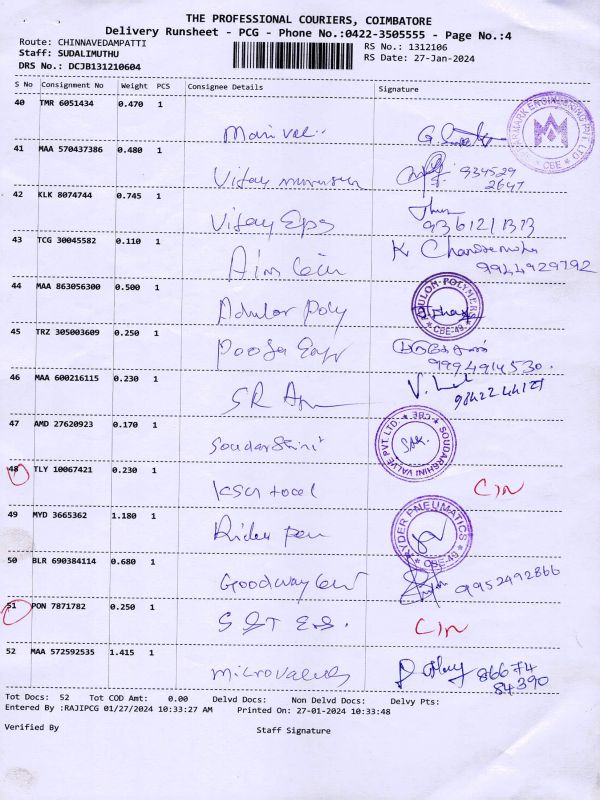 THE PROFESSIONAL COURIERS, COIMBATORE
Delivery Runsheet - PCG - Phone No.:0422-3505555 - Page No.:4
Route: CHINNAVEDAMPATTI
RS No.: 1312106
Staff: SUDALIMUTHU
RS Date: 27-Jan-2024
DRS No.: DCJB131210604
S No Consignment No Weight PCS Consignee Details Signature
40 TMR 6051434 0.470 1
41 MAA 570437386 0.480 1
Vijay 934529
2647
42 KLK 8074744 0.745 1
Vijay Eps 936121/1313
43 TCG 30045582 0.110 1
K
9944929792
44 MAA 863056300 0.500 1
Adulor Poly
45 TRZ 305003609 0.250 1
Pooja 9994914530.
46 MAA 600216115 0.230 1
SR
47 AMD 27620923 0.170 1
Soudarshini SOUDARSHINI VALVE PVT.LTD. CBE
48 TLY 10067421 0.230 1
C/N
49 MYD 3665362 1.180 1
RYDER PNEUMATICS CBE-49
50 BLR 690384114 0.680 1
Goodway 9952492866
51 PON 7871782 0.250 1
C/N
52 MAA 572592535 1.415 1
Microvalves 86674
84390
Tot Docs: 52 Tot COD Amt: 0.00 Delvd Docs: Non Delvd Docs: Delvy Pts:
Entered By :RAJIPCG 01/27/2024 10:33:27 AM Printed On: 27-01-2024 10:33:48
Verified By Staff Signature